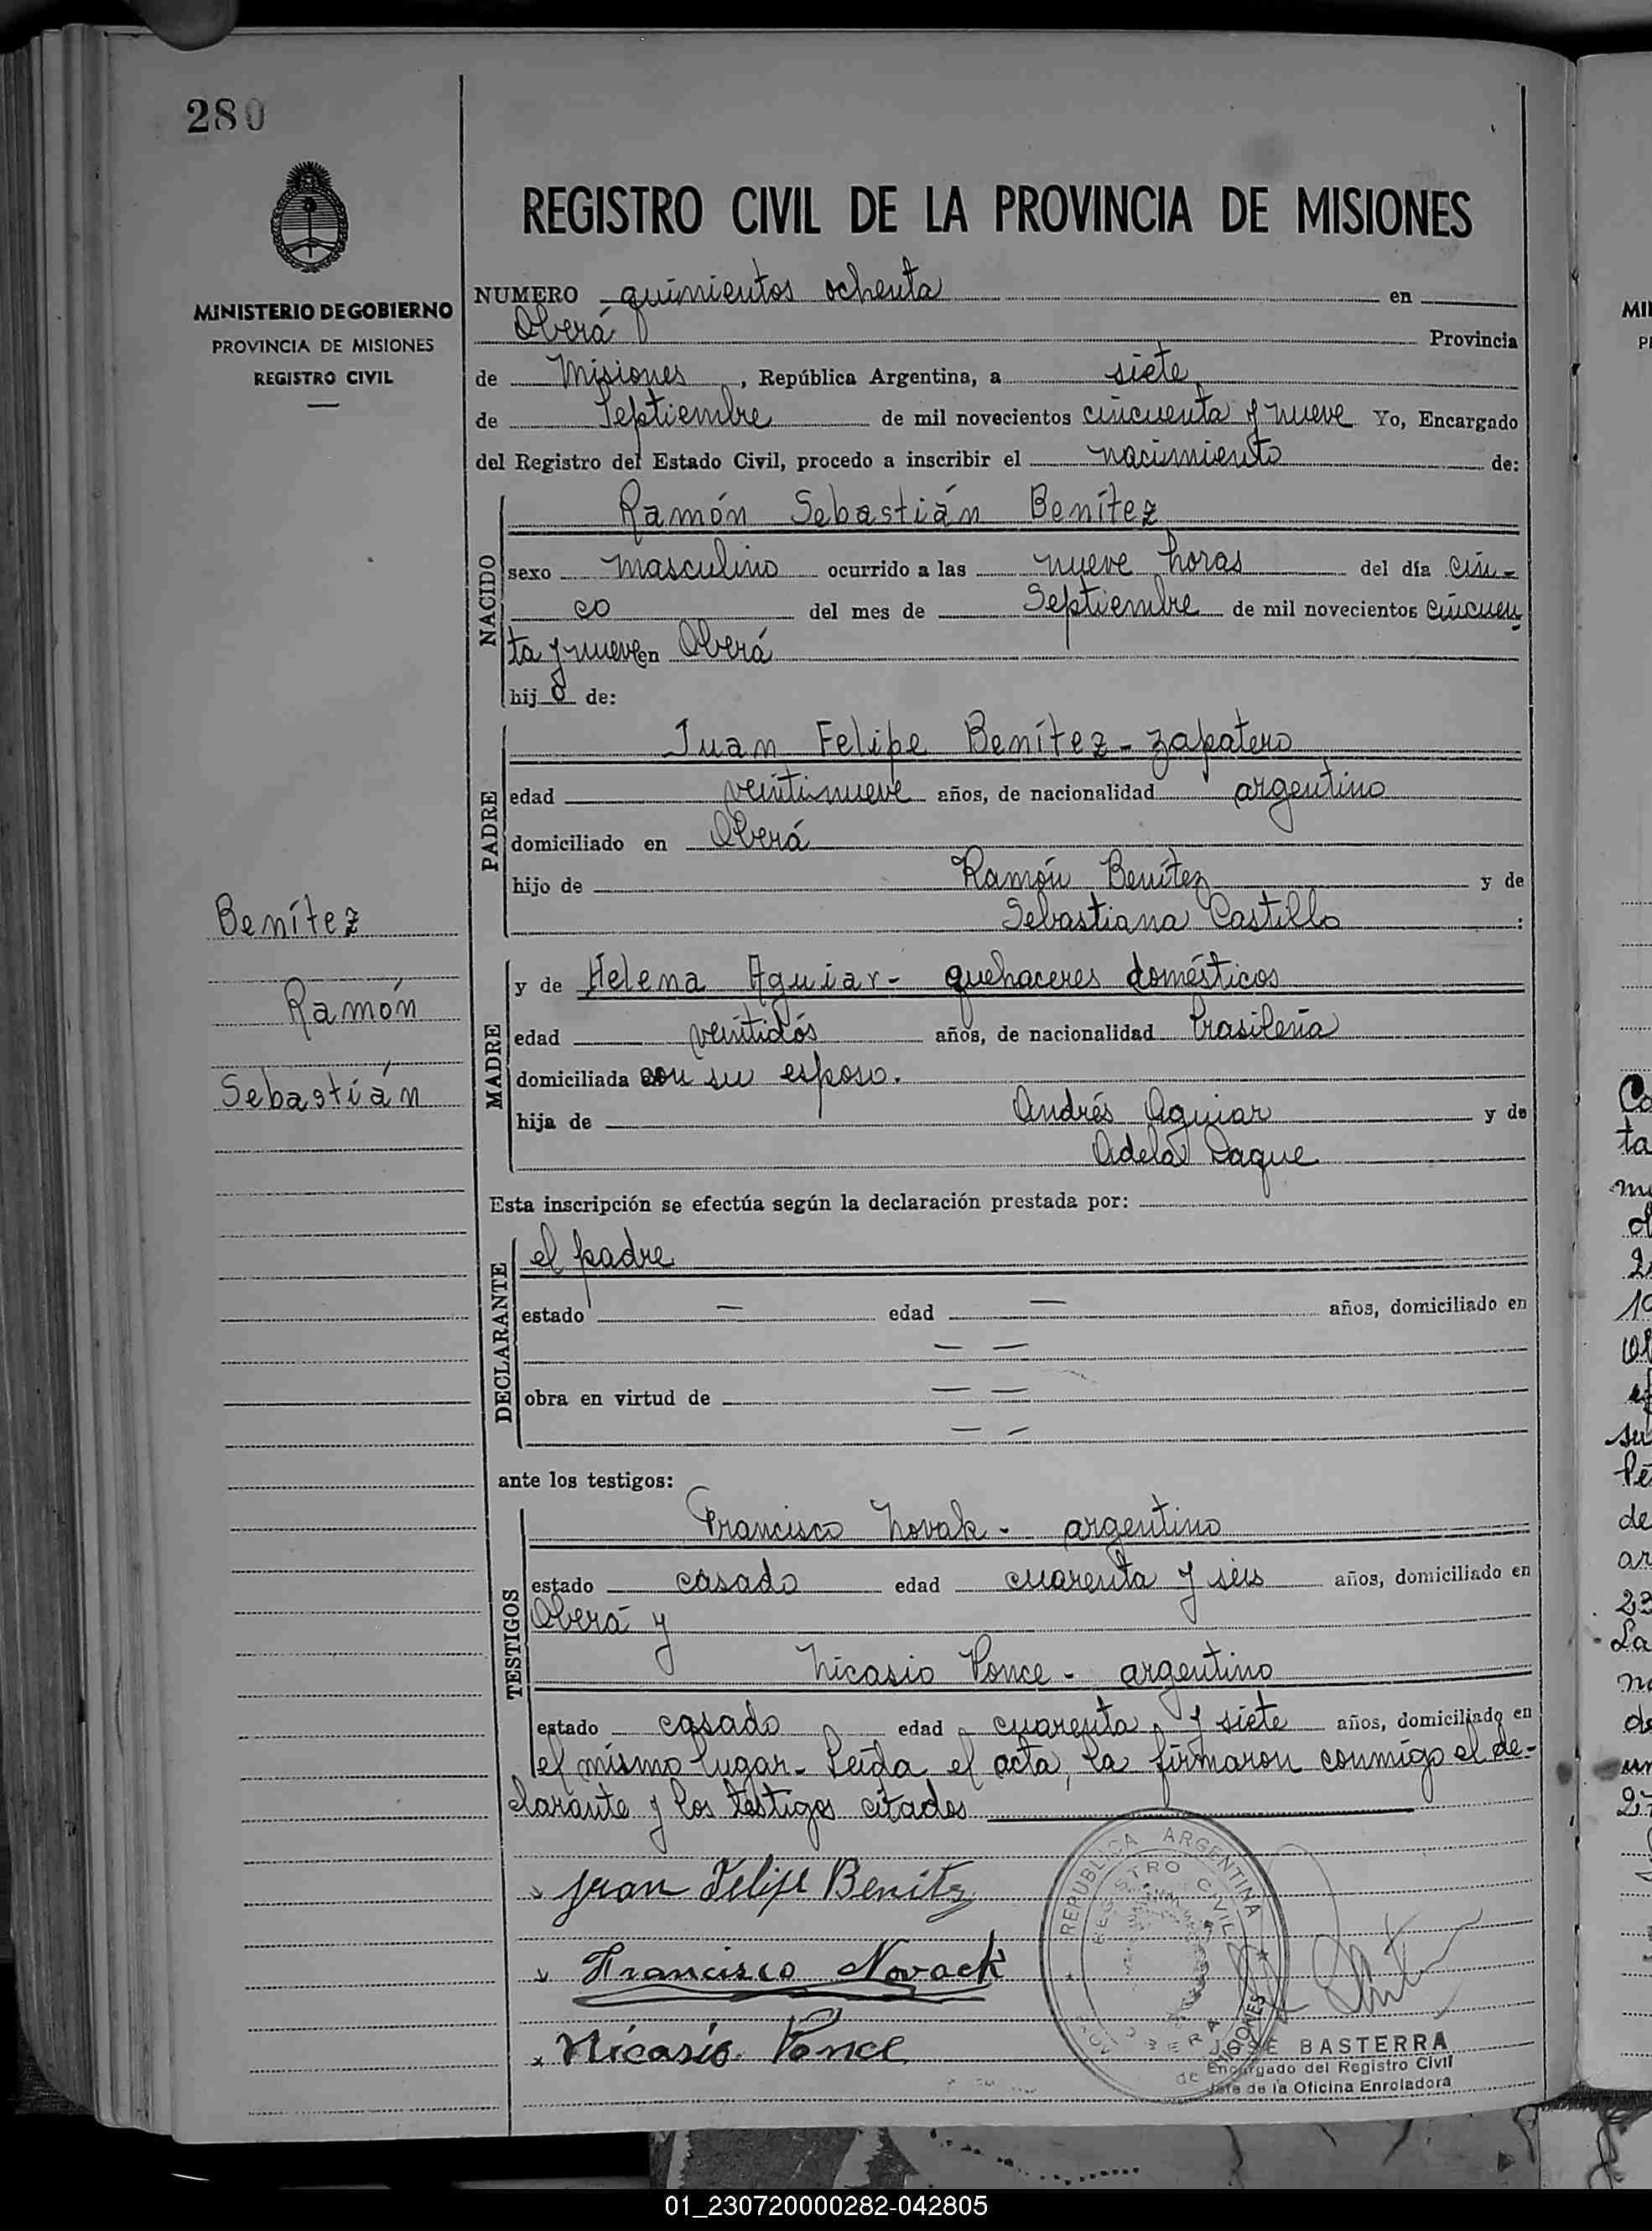 280
MINISTERIO DE GOBIERNO
PROVINCIA DE MISIONES
REGISTRO CIVIL
REGISTRO CIVIL DE LA PROVINCIA DE MISIONES
NUMERO quinientos ochenta en
Oberá Provincia
de Misiones, República Argentina, a siete
de Septiembre de mil novecientos cincuenta y nueve Yo, Encargado
del Registro del Estado Civil, procedo a inscribir el nacimiento de:
NACIDO
Ramón Sebastián Benítez
sexo masculino ocurrido a las nueve horas del día cin-
co del mes de Septiembre de mil novecientos cincuen
ta y nueve en Oberá
hijo de:
PADRE
Juan Felipe Benítez - zapatero
edad veintinueve años, de nacionalidad argentino
domiciliado en Oberá
hijo de Ramón Benítez y de
Sebastiana Castillo :
Benítez
Ramón
Sebastián
MADRE
y de Helena Aguiar - quehaceres domésticos
edad veintidós años, de nacionalidad brasileña
domiciliada con su esposo.
hija de Andrés Aguiar y de
Adela Daque
Esta inscripción se efectúa según la declaración prestada por:
DECLARANTE
el padre
estado — edad — años, domiciliado en
— —
obra en virtud de — —
— -
ante los testigos:
TESTIGOS
Francisco Novak - argentino
estado casado edad cuarenta y seis años, domiciliado en
Oberá y
Nicasio Ponce - argentino
estado casado edad cuarenta y siete años, domiciliado en
el mismo lugar - Leída el acta, la firmaron conmigo el de-
clarante y los testigos citados
Juan Felipe Benitz
Francisco Novack
Nicasio Ponce
REPUBLICA ARGENTINA
REGISTRO CIVIL
OBERA
MISIONES
JOSE BASTERRA
Encargado del Registro Civil
Jefe de la Oficina Enroladora
01_230720000282-042805